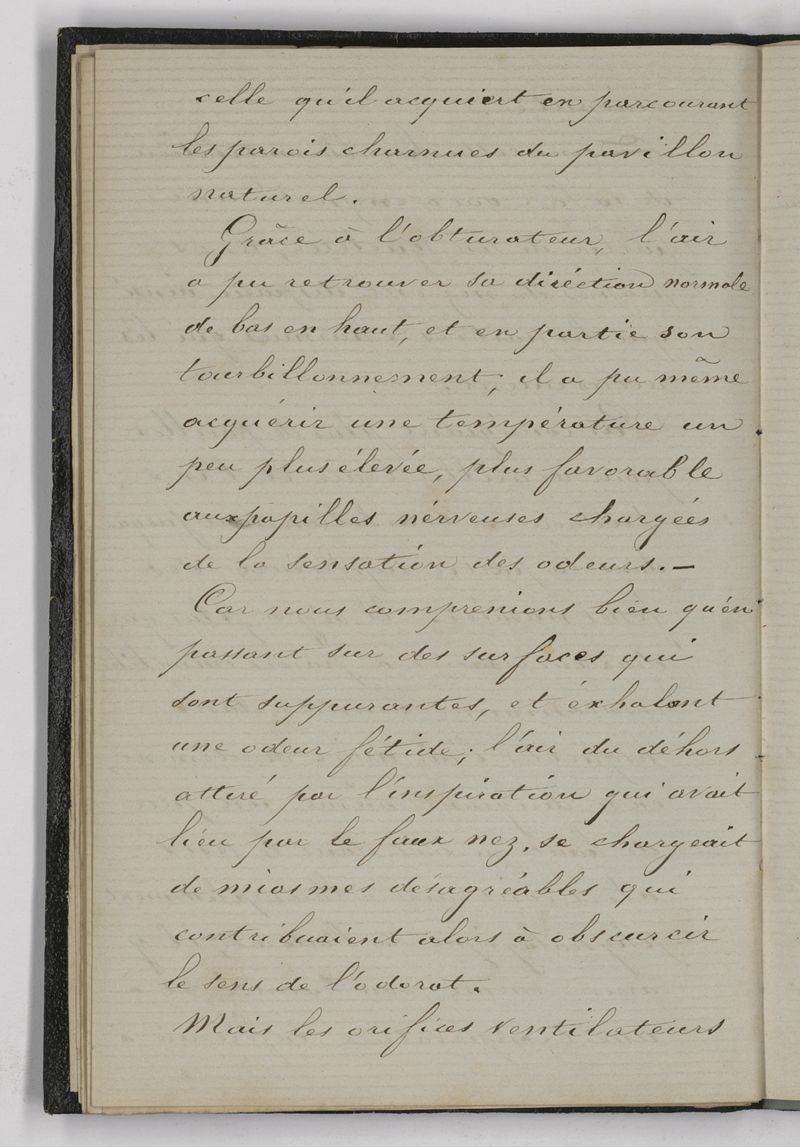 celle qu'il acquiert en parcourant
les parois charnues du pavillon
naturel.
Grâce à l'obturateur, l'air
a pu retrouver sa diréction normale
de bas en haut, et en partie son
tourbillonnement; il a pu même
acquérir une température un
peu plus élevée, plus favorable
aux papilles nérveuses chargées
de la sensation des odeurs. —
Car nous comprenions bien qu'en
passant sur des surfaces qui
sont suppurantes, et éxhalent
une odeur fétide; l'air du déhors
attiré par l'inspiration qui avait
lieu par le faux nez, se chargeait
de miasmes désagréables qui
contribuaient alors à obscurcir
le sens de l'odorat.
Mais les orifices ventilateurs